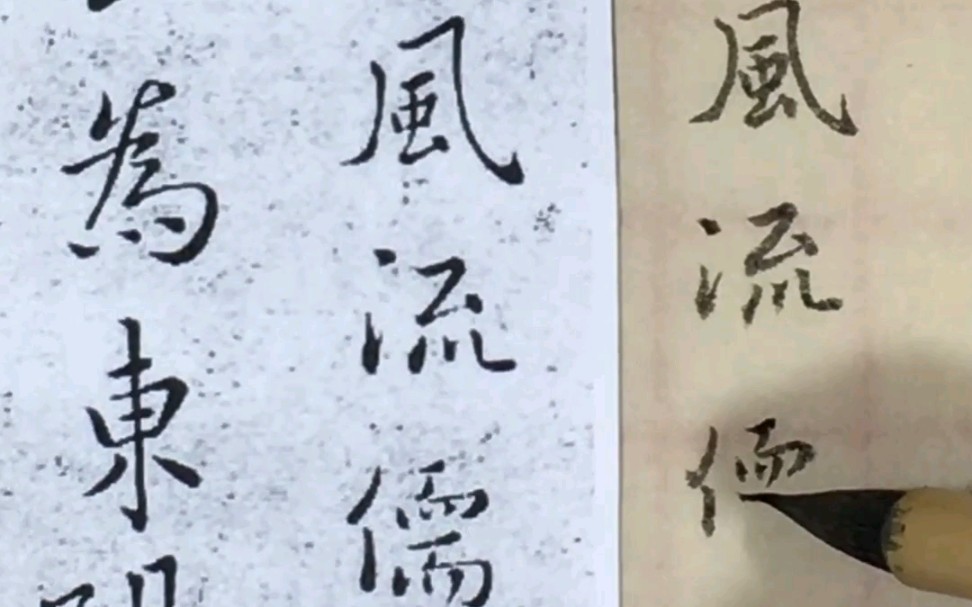 風流儒
風流儒
為東